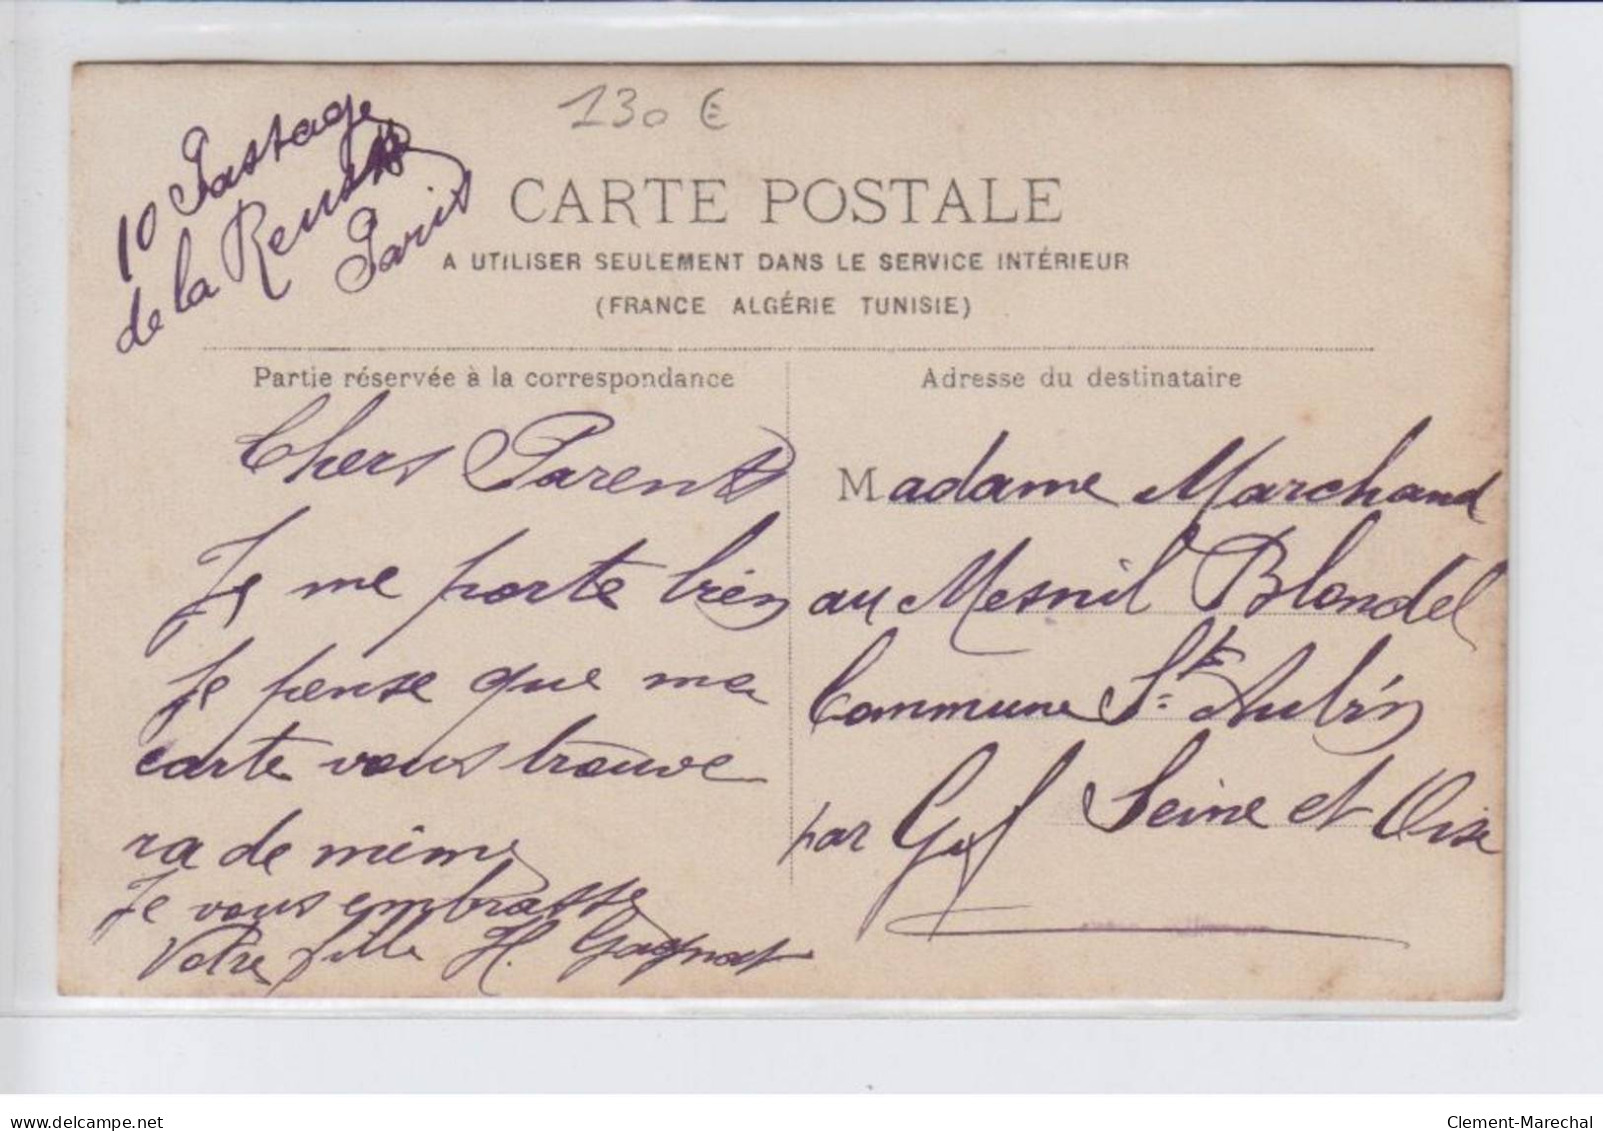 130 €
10 Passage
de la Reuss
Paris
CARTE POSTALE
A UTILISER SEULEMENT DANS LE SERVICE INTÉRIEUR
(FRANCE ALGÉRIE TUNISIE)
Partie réservée à la correspondance
Chers Parents
Je me porte bien
je pense que ma
carte vous trouve
ra de même
Je vous embrasse
Votre fille H. Gagnat
Adresse du destinataire
Madame Marchand
au Mesnil Blondel
Commune St Aubin
par Seine et Oise
delcampe.net
Clement-Marechal